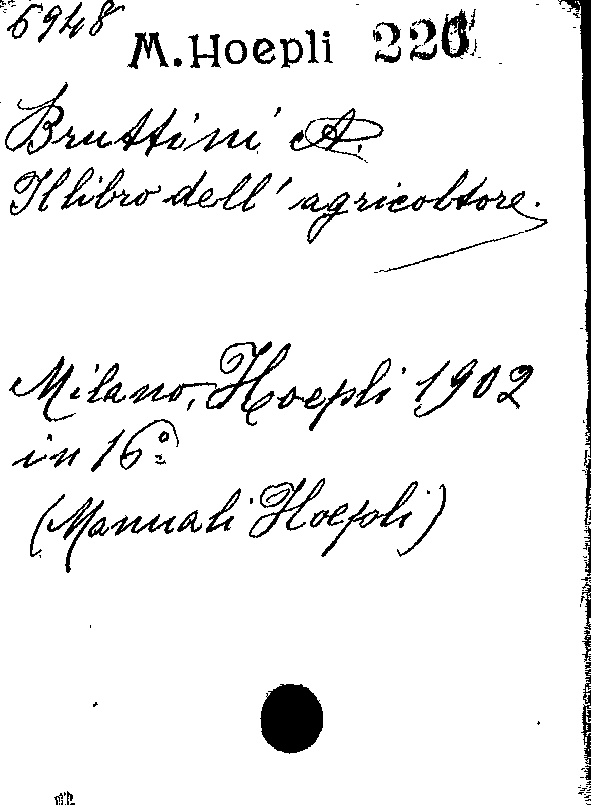 6948
M. Hoepli 226
Bruttini A.
Il libro dell' agricoltore.
Milano, Hoepli 1902
in 16º
(Manuali Hoepli)